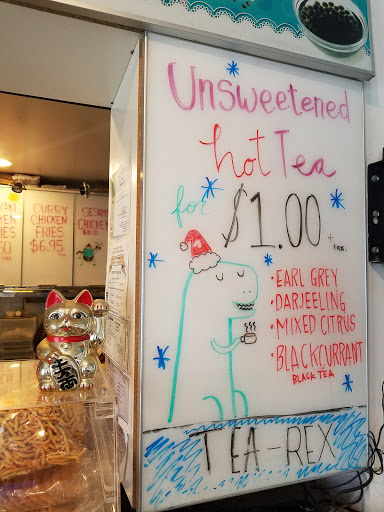 Unsweetened
hot Tea
for $1.00
+ tax.
• EARL GREY
• DARJEELING
• MIXED CITRUS
• BLACKCURRANT
BLACK TEA
TEA-REX
CURRY
CHICKEN
FRIES
$6.95
SESAME
CHICKEN